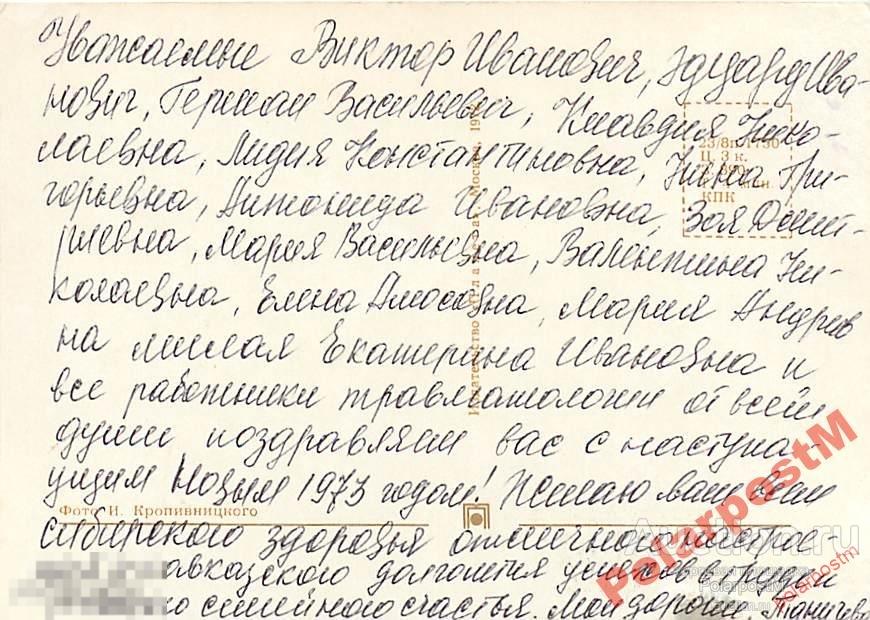 Уважаемые Виктор Иванович, Эдуард Ива-
нович, Герман Васильевич, Клавдия Нико-
лаевна, Лидия Константиновна, Нина Гри-
горьевна, Антонида Ивановна, Зоя Дмит-
риевна, Мария Васильевна, Валентина Ни-
колаевна, Елена Амосовна, Мария Андреев
на милая Екатерина Ивановна и
все работники травматологии от всей
души поздравляю вас с наступа-
ющим Новым 1973 годом! Желаю вам всем
сибирского здоровья отличного настрое-
кавказского долголетия успехов в труде
семейного счастья. Мои дорогие,
23/8п-1730
Ц. 3 к.
КПК
Издательство Москва.
Фото И. Кропивницкого
PolarpostM
Polarpostm